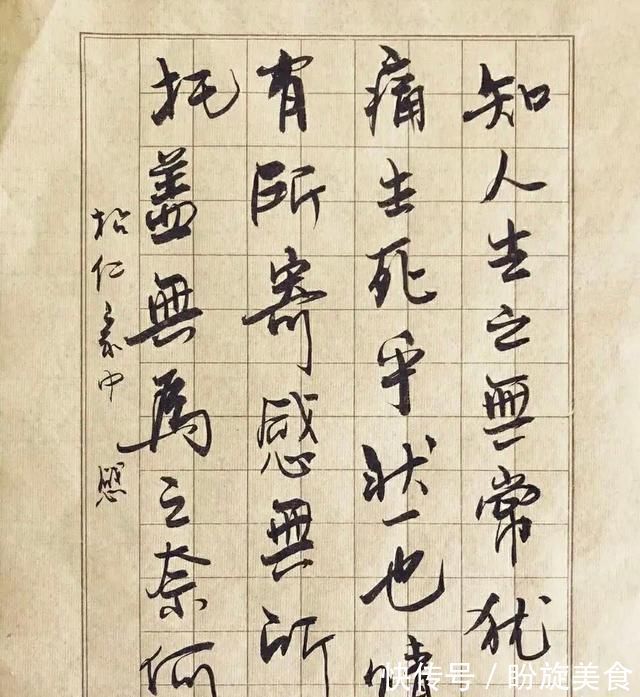 知人生之無常犹
痛生死乎状一也情
有所寄感無所
托盖無為之奈何
仁豪中
快传号 / 盼旋美食